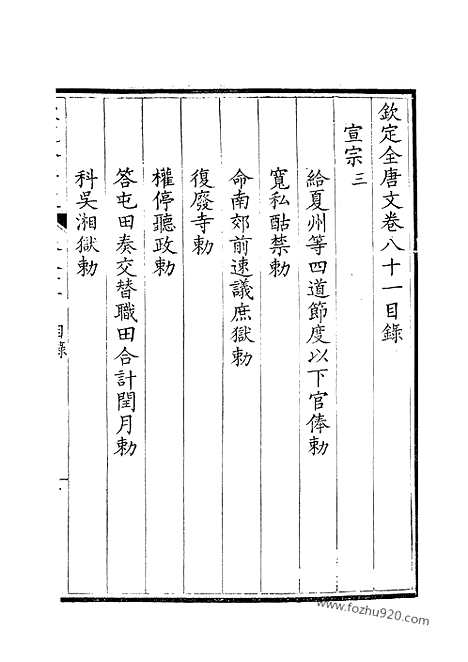 欽定全唐文卷八十一目錄
宣宗三
給夏州等四道節度以下官俸勅
寬私酤禁勅
命南郊前速議庶獄勅
復廢寺勅
權停聽政勅
答屯田奏交替職田合計閏月勅
科吳湘獄勅
目錄
www.fozhu920.com